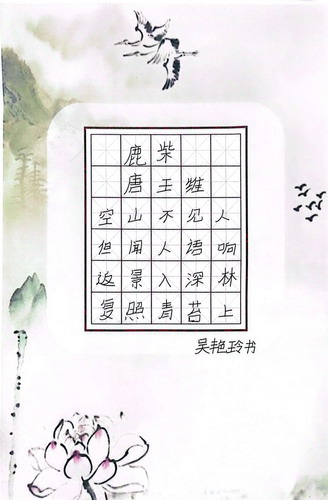 鹿柴
唐王维
空山不见人
但闻人语响
返景入深林
复照青苔上
吴艳玲书